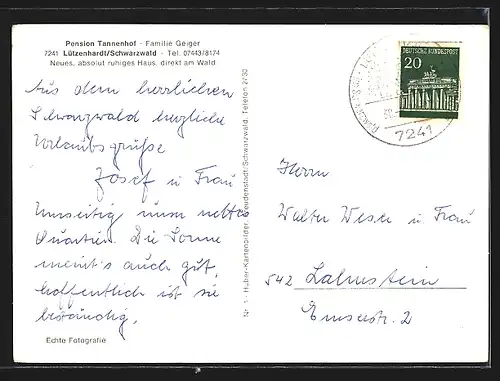 Pension Tannenhof - Familie Geiger
7241 Lützenhardt/Schwarzwald - Tel. 07443/8174
Neues, absolut ruhiges Haus, direkt am Wald
Aus dem herrlichen
Schwarzwald
Urlaubsgrüße
Josef u Frau
Umseitig unser nettes
Quartier. Die Sonne
meint's auch gut,
hoffentlich ist sie
beständig.
Echte Fotografie
Huber-Kartenbilder, Freudenstadt-Schwarzwald, Telefon 2730
DEUTSCHE BUNDESPOST
20
7241
Herrn
Walter Weser u. Frau
542 Lahnstein
Emserstr. 2